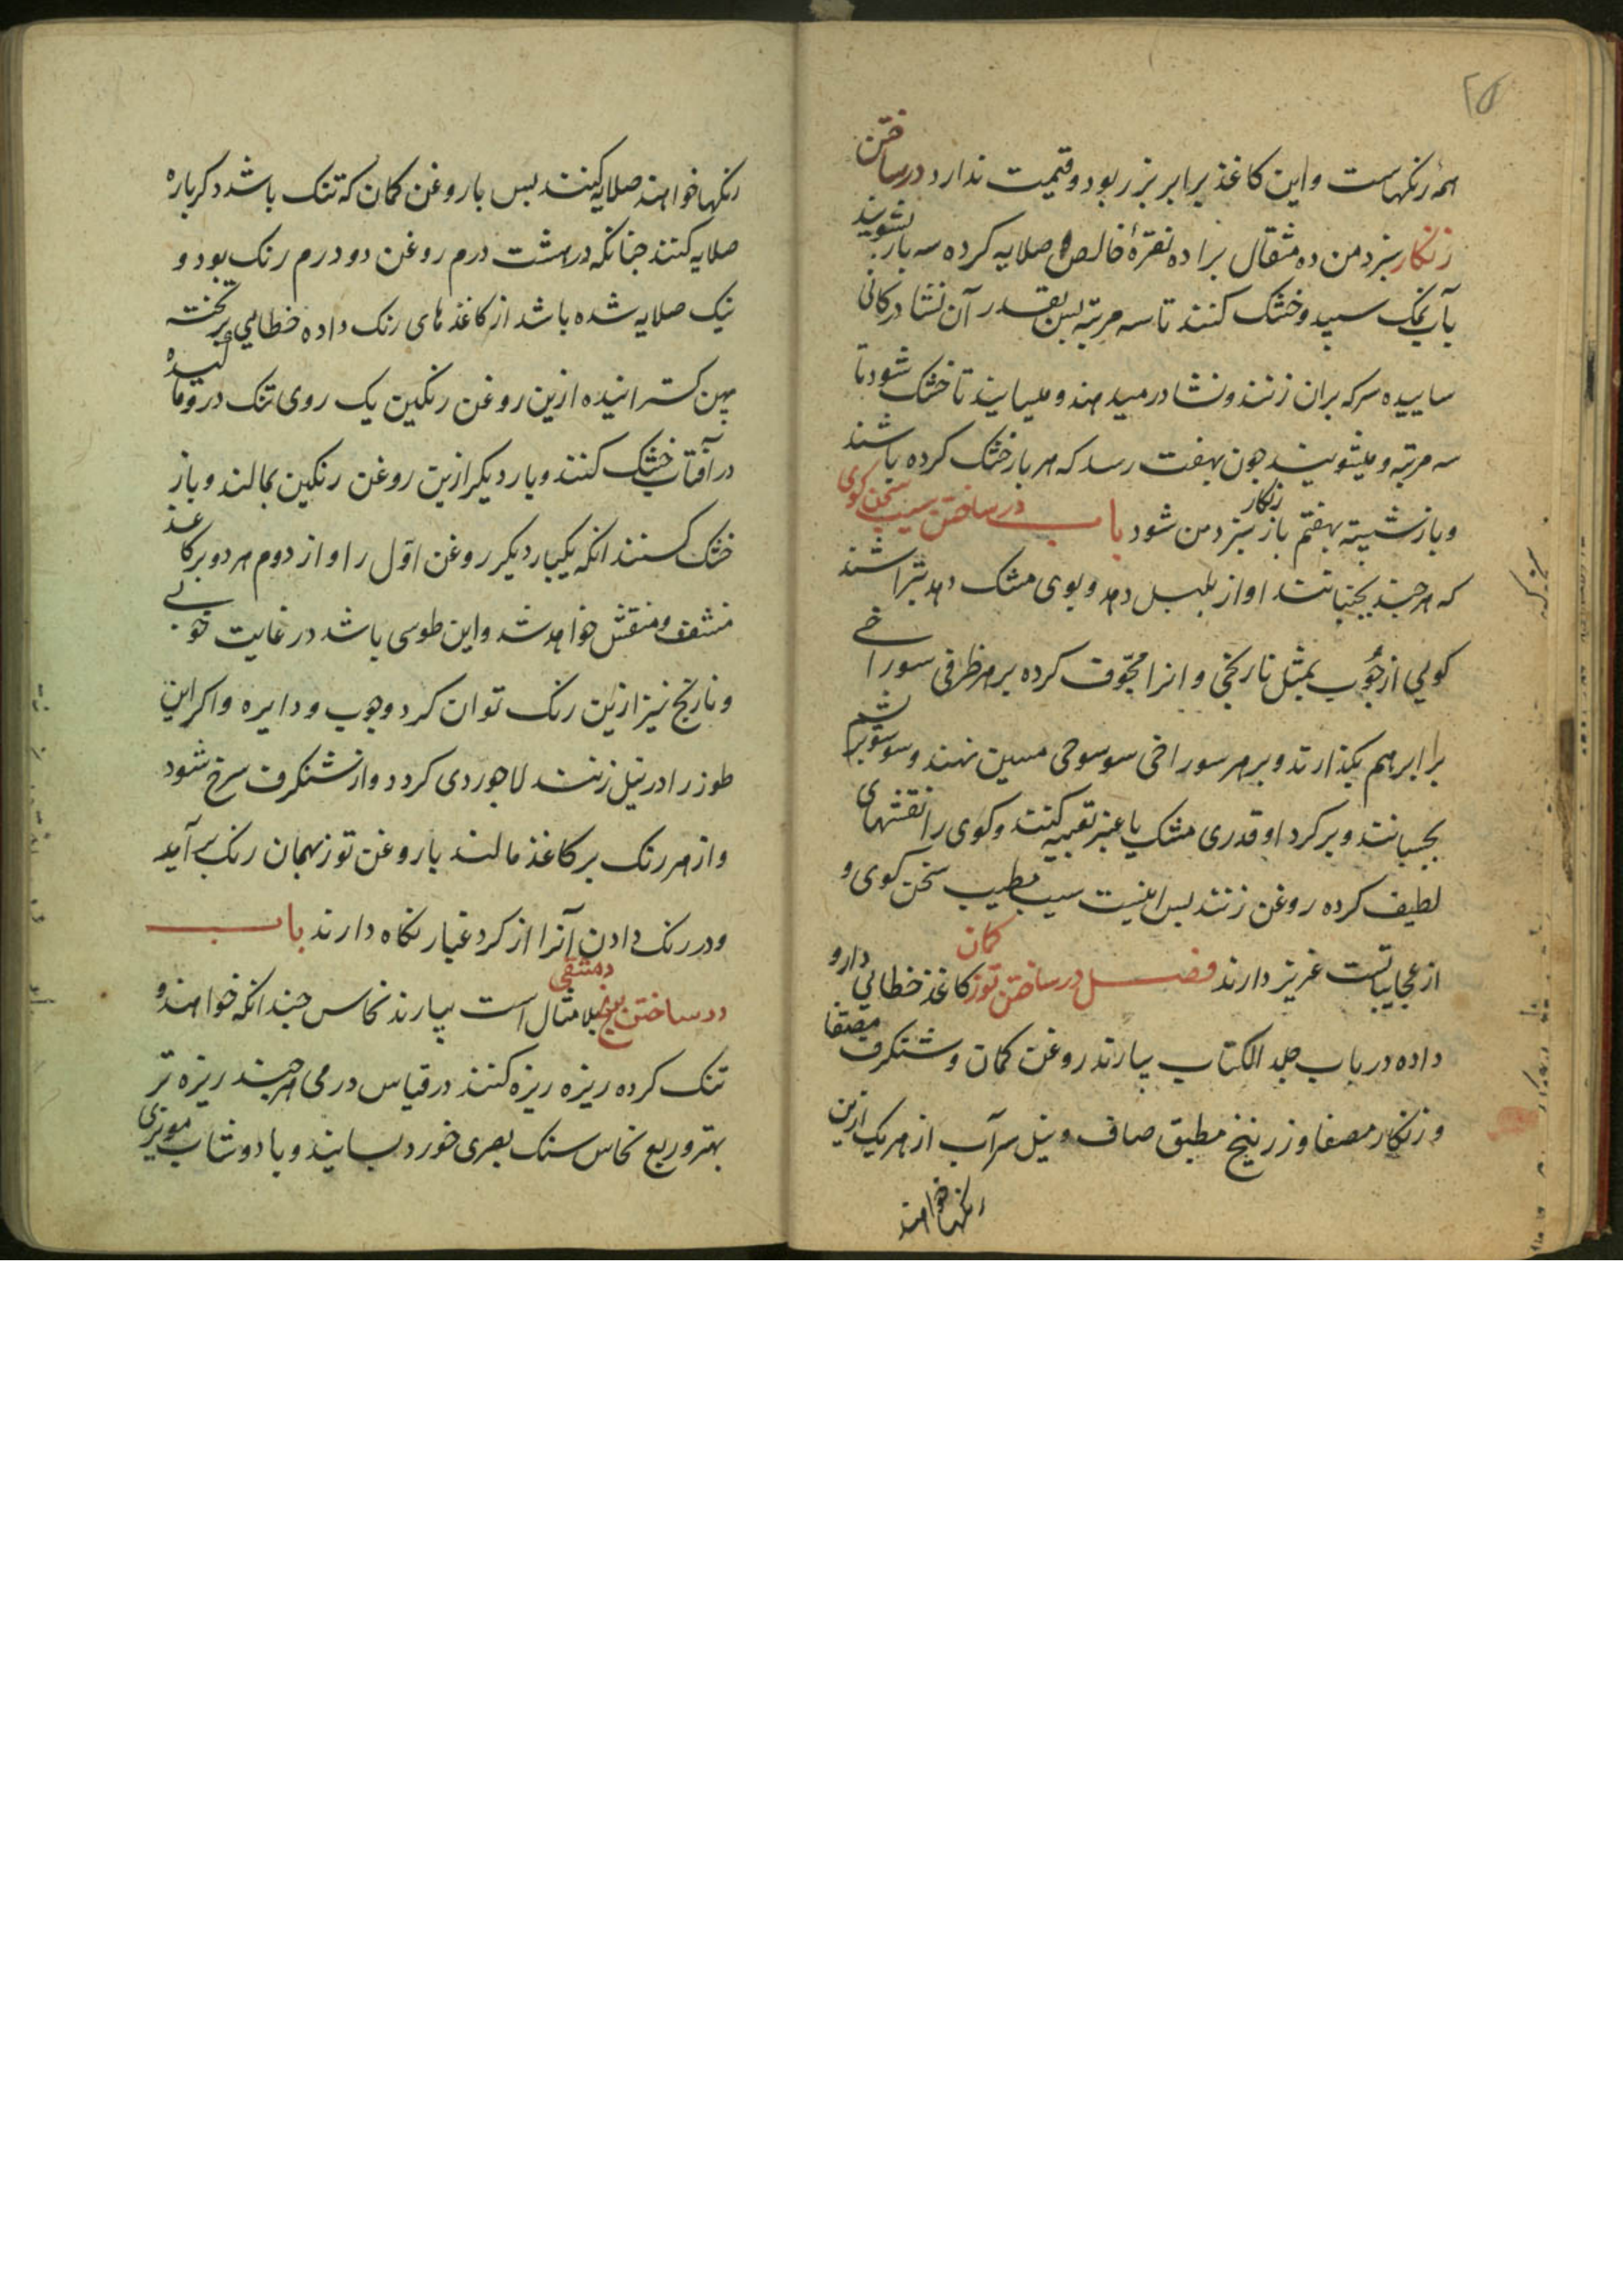 ۲۵
همه رنکهاست و این کاغذ برابر بزر بود و قیمت ندارد در ساختن
زنکار سبز دمن ده مثقال براده نقرهٔ خالص صلایه کرده سه بار بشویند
بآب نمک سپید و خشک کنند تا سه مرتبه پس بقدر آن نشادر کانی
ساییده سرکه بران زنند و نشادر میدهند و میسایند تا خشک شود تا
سه مرتبه و میشویند جون بهفت رسد که هر بار خشک کرده باشند
و باز شسته بهفتم بار زنکار سبز دمن شود باب در ساختن سیب سخن کوی
که هر جند بجنبانند اواز بلبل دهد و بوی مشک دهد بتراشند
کویی از جُوب بمثل نارنجی و انرا مجوّف کرده بر هر طرفی سوراخی
برابر هم بکذارند و بر هر سوراخی سوسوجی مسین نهند و سوسو بریشم
بجسبانند و بر کرد او قدری مشک یا عنبر تعبیه کنند و کوی را نقشهای
لطیف کرده روغن زنند بس اینست سیب مطیب سخن کوی و
از عجایباتست عزیز دارند فصل در ساختن توز کمان کاغذ خطایی دارو
داده در باب جلد الکتاب بیارند روغن کمان و شنکرف مصفا
و زنکار مصفا و زرنیخ مطبق صاف و نیل سرآب از هر یک ازین
رنکها خواهند
رنکها خواهند صلایه کنند بس با روغن کمان که تنک باشد دکرباره
صلایه کنند جنانکه در هشت درم روغن دو درم رنک بود و
نیک صلایه شده باشد از کاغذهای رنک داده خطایی بر تخته
بهن کسترانیده ازین روغن رنکین یک روی تنک درو مالیده
در آفتاب خشک کنند و بار دیکر ازین روغن رنکین بمالند و باز
خشک کنند انکه یکبار دیکر روغن اوّل را و از دوم هر دو بر کاغذ
مشفق و منقش خواهد شد و این طوسی باشد در غایت خوبی
و نارنج نیز ازین رنک توان کرد و جوب و دایره و اکر این
طوز را در نیل زنند لاجوردی کردد و از شنکرف سرخ شود
و از هر رنک بر کاغذ مالند با روغن توز بهمان رنک برآید
و در رنک دادن آنرا از کرد غبار نکاه دارند باب
در ساختن دمشقی بلا مثال است بیارند نحاس جندانکه خواهند و
تنک کرده ریزه ریزه کنند در قیاس درمی هر جند ریزه تر
بهتر و ربع نحاس سنک بصری خورد بسایند و با دوشاب مویزی